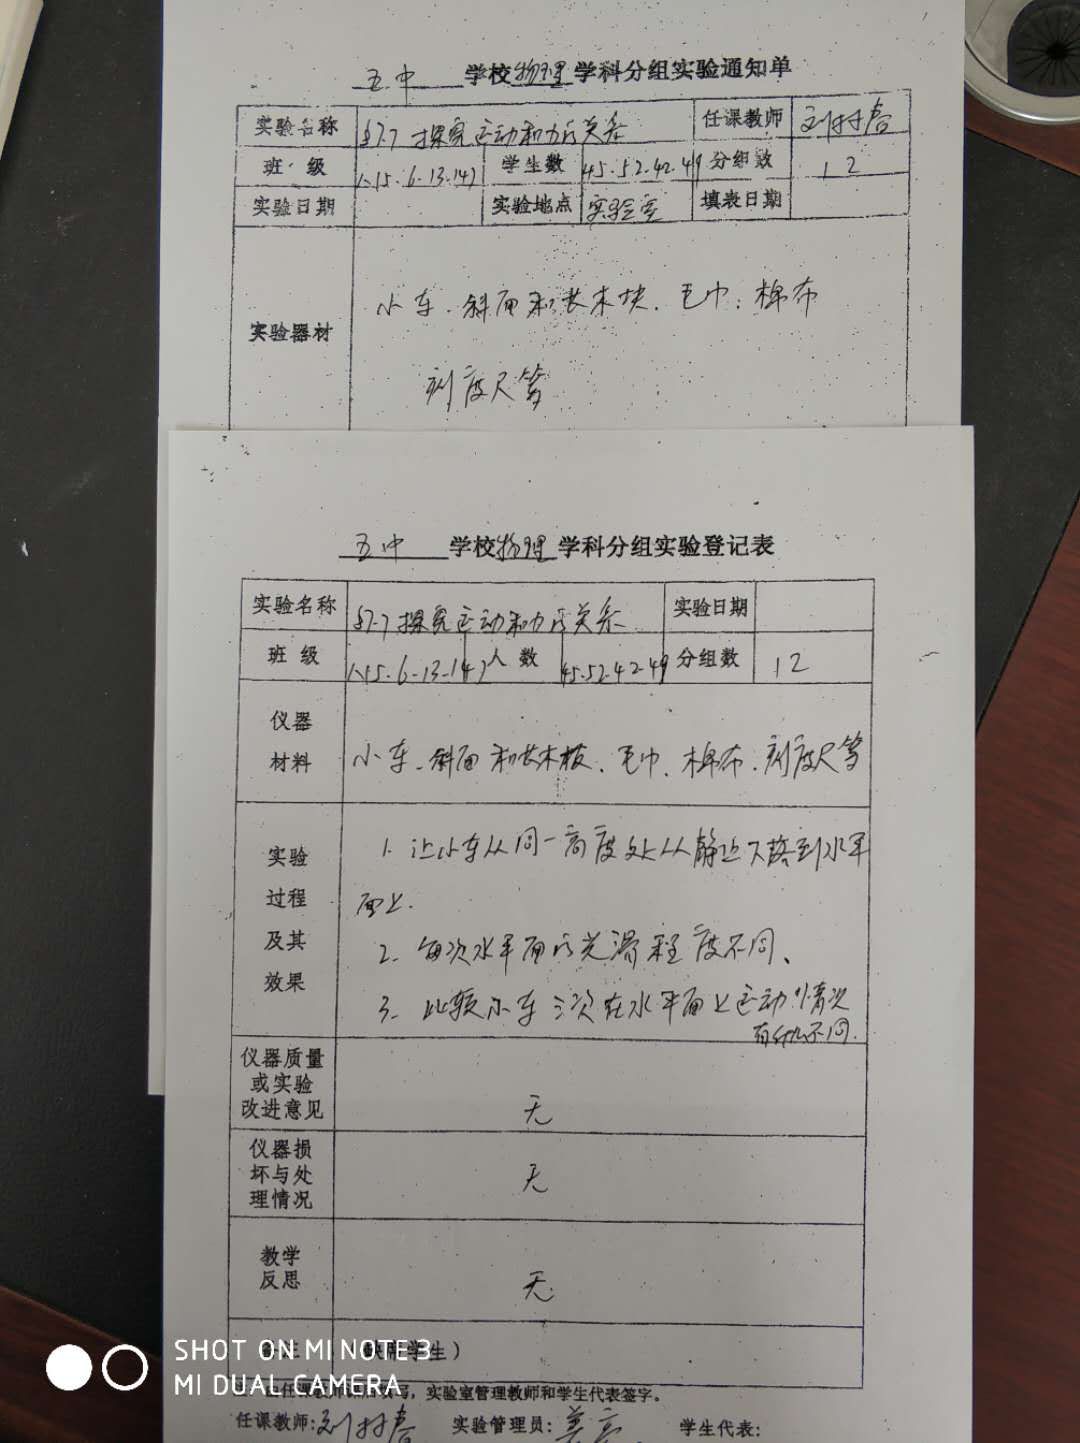 五中 学校物理学科分组实验通知单
实验名称 §7.7 探究运动和力的关系 任课教师
班·级 1.15.6.13.14) 学生数 45.52.42.49 分组数 12
实验日期 实验地点 实验室 填表日期
实验器材 小车.斜面和长木块.毛巾.棉布
刻度尺等
五中 学校物理学科分组实验登记表
实验名称 §7.7 探究运动和力的关系 实验日期
班级 1.15.6.13.14) 人数 45.52.42.49 分组数 12
仪器材料 小车.斜面和长木板、毛巾、棉布.刻度尺等
实验过程及其效果 1.让小车从同一高度处从静止下落到水平
面上.
2.每次水平面的光滑程度不同、
3.比较小车三次在水平面上运动情况
有什么不同.
仪器质量或实验改进意见 无
仪器损坏与处理情况 无
教学反思 无
缺席学生)
实验室管理教师和学生代表签字。
任课教师: 实验管理员: 学生代表:
SHOT ON MI NOTE 3
MI DUAL CAMERA